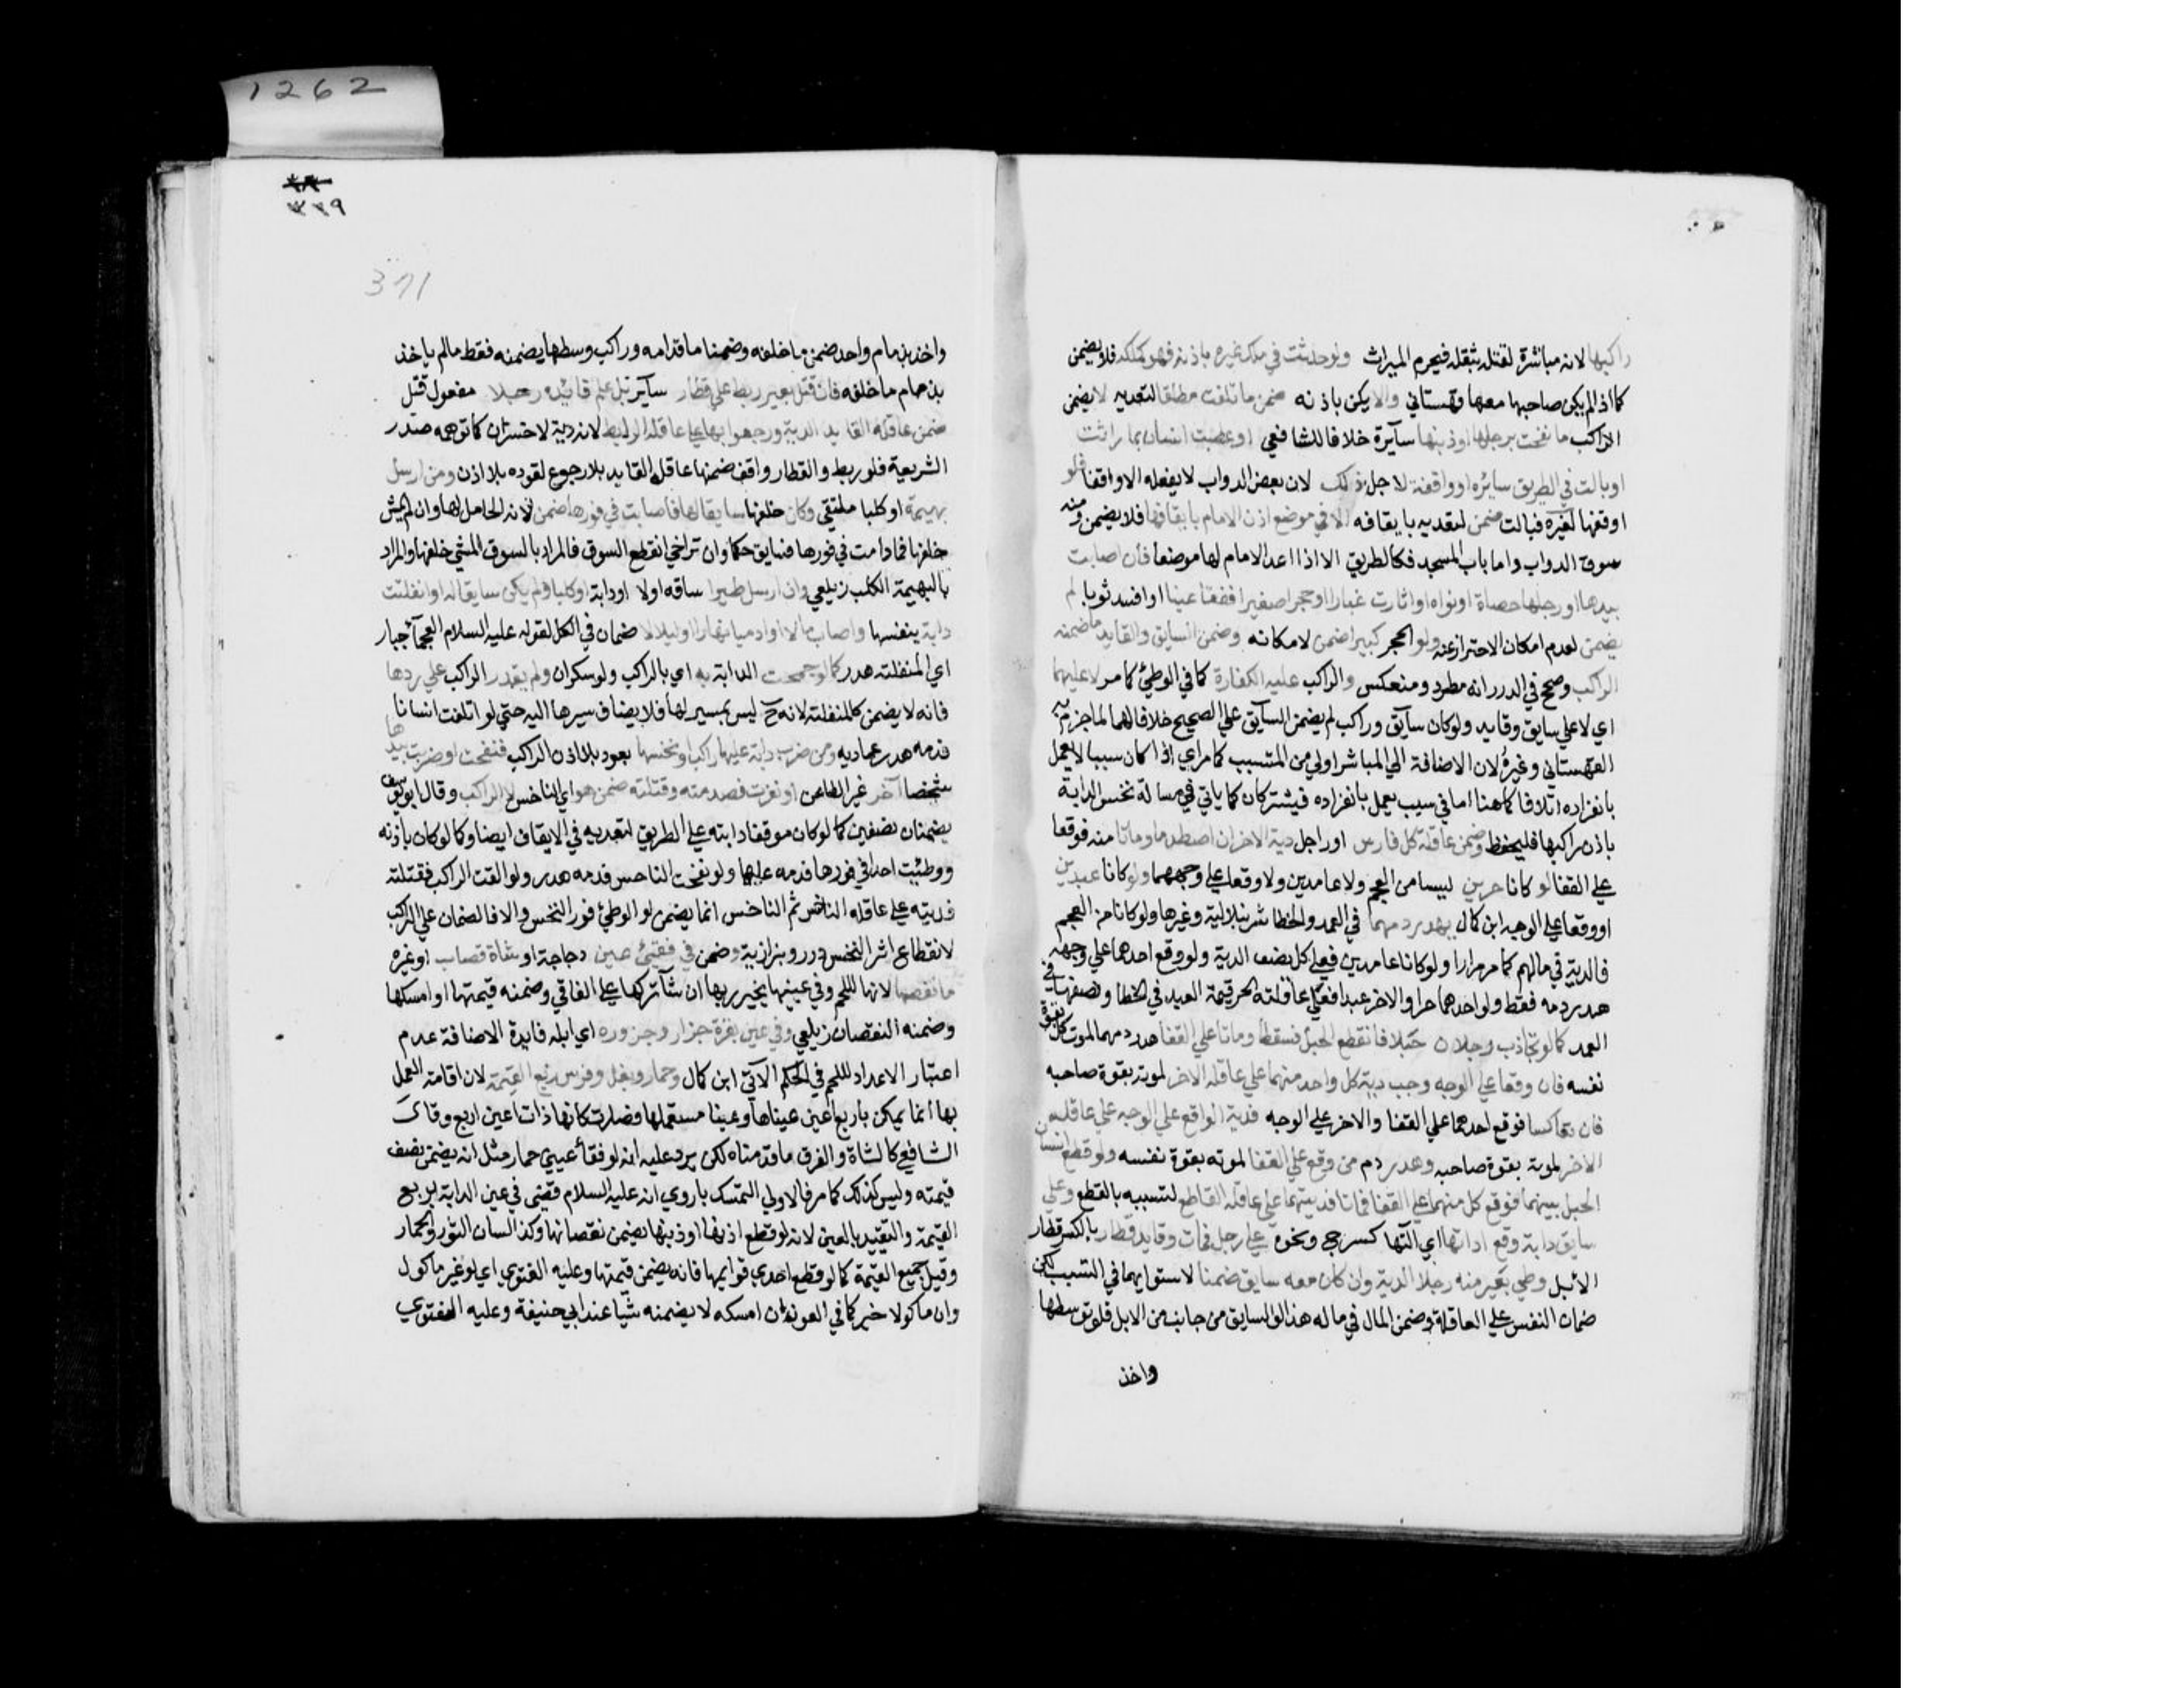 راكبها لانه مباشرة لقتله بثقله فيحرم الميراث ولو حدثت في ملك غيره باذنه فهو كملكه فلا يضمن
كما اذا لم يكن صاحبها معها قهستاني والا يكن باذنه ضمن ما تلفت مطلقا لتعديه لا يضمن
الراكب ما نفحت برجلها او ذنبها سآيرة خلافا للشافعي او عطبت انسان بما راثت
او بالت في الطريق سائرة او واقفة لاجل ذلك لان بعض الدواب لا يفعله الا واقفا فلو
اوقفها لغيره فبالت ضمن لتعديه بايقافه الا في موضع اذن الامام بايقافها فلا يضمن ومنه
سوق الدواب واما باب المسجد فكالطريق الا اذا اعد الامام لها موضعا فان اصابت
بيدها او رجلها حصاة او نواه او اثارت غبارا او حجرا صغيرا ففقأ عينا او افسد ثوبا لم
يضمن لعدم امكان الاحتراز عنه ولو الحجر كبيرا ضمن لامكانه وضمن السايق والقايد ما ضمنه
الراكب وصحح في الدرر انه مطرد ومنعكس والراكب عليه الكفارة كما في الوطئ كما مر لا عليهما
اي لا على سايق وقايد ولو كان سآيق وراكب لم يضمن السآيق علي الصحيح خلافا لهما لما جزم به
القهستاني وغيره لان الاضافة الي المباشر اولي من المتسبب كما مر اي اذا كان سببا لا يعمل
بانفراده اتلافا كما هنا اما في سبب يعمل بانفراده فيشتركان كما ياتي في مسالة نخس الدابة
باذن راكبها فليحفظ وضمن عاقلة كل فارس او راجل دية الاخر ان اصطدما وماتا منه فوقعا
علي القفا لو كانا حرين ليسا من العجم ولا عامدين ولا وقعا علي وجههما ولو كانا عبدين
او وقعا علي الوجه ابن كمال يهدر دمهما في العمد والخطا شرنبلالية وغيرها ولو كانا من العجم
فالدية في مالهم كما مر مرارا ولو كانا عامدين فعلي كل نصف الدية ولو وقع احدهما علي وجهه
هدر دمه فقط ولو احدهما حرا والاخر عبدا فعلي عاقلة الحر قيمة العبد في الخطا ونصفها في
العمد كما لو تجاذب رجلان حبلا فانقطع الحبل فسقطا وماتا علي القفا هدر دمهما لموت كل بقوة
نفسه فان وقعا علي الوجه وجب دية كل واحد منهما علي عاقلة الاخر لموته بقوة صاحبه
فان تعاكسا فوقع احدهما علي القفا والاخر علي الوجه فدية الواقع علي الوجه علي عاقلة
الاخر لموته بقوة صاحبه وهدر دم من وقع علي القفا لموته بقوة نفسه ولو قطع انسان
الحبل بينهما فوقع كل منهما علي القفا فماتا فديتهما علي عاقلة القاطع لتسببه بالقطع وعلي
سايق دابة وقع اداتها اي آلتها كسرج ونحوه علي رجل فمات وقايد قطار بالكسر قطار
الابل وطي بعير منه رجلا الدية وان كان معه سايق ضمنا لاستوايهما في التسبب لكن
ضمان النفس علي العاقلة وضمن المال في ماله هذا لو السايق من جانب من الابل فلو توسطها
واخذ
1262
٣٣٩
371
واخذ بزمام واحد ضمن ما خلفه وضمنا ما قدامه وراكب وسطها يضمنه فقط ما لم ياخذ
بزمام ما خلفه فان قتل بعير ربط علي قطار سآير بلا علم قائده رجلا مفعول قتل
ضمن عاقلة القايد الدية ورجعوا بها علي عاقلة الرابط لانه دية لا خسران كما توهمه صدر
الشريعة فلو ربط والقطار واقف ضمنها عاقلة القايد بلا رجوع لقوده بلا اذن ومن ارسل
بهيمة او كلبا ملتقي وكان خلفها سايقا لها فاصابت في فورها ضمن لانه الحامل لها وان لم يمش
خلفها فما دامت في فورها فسايق حكما وان تراخي انقطع السوق فالمراد بالسوق المشي خلفها والمراد
بالبهيمة الكلب زيلعي وان ارسل طيرا ساقه اولا او دابة او كلبا ولم يكن سايقا له او انفلتت
دابة بنفسها واصاب مالا او ادميا نهارا او ليلا لا ضمان في الكل لقوله عليه السلام العجمآ جبار
اي المنفلتة هدر كما لو جمحت الدابة به اي بالراكب ولو سكران ولم يقدر الراكب علي ردها
فانه لا يضمن كالمنفلتة لانه ح ليس بمسير لها فلا يضاف سيرها اليه حتي لو اتلفت انسانا
فدمه هدر عماديه ومن ضرب دابة عليها راكب او نخسها بعود بلا اذن الراكب فنفحت او ضربت بيدها
شخصا آخر غير الطاعن او نفرت فصدمته وقتلته ضمن هو اي الناخس لا الراكب وقال ابو يوسف
يضمنان نصفين كما لو كان موقفا دابته علي الطريق لتعديه في الايقاف ايضا وكما لو كان باذنه
ووطئت احدا في فورها فدمه عليهما ولو نفحت الناخس فدمه هدر ولو القت الراكب فقتلته
فديته علي عاقلة الناخس ثم الناخس انما يضمن لو الوطئ فور النخس والا فالضمان علي الراكب
لانقطاع اثر النخس درر وبزازية وضمن في فقئ عين دجاجة او شاة قصاب او غيره
ما نقصها لانها لللحم وفي عينيها يخير ربها ان شآ تركها علي الفاقي وضمنه قيمتها او امسكها
وضمنه النقصان زيلعي وفي عين بقرة جزار وجزوره اي ابله فايدة الاضافة عدم
اعتبار الاعداد لللحم في الحكم الآتي ابن كمال وحمار وبغل وفرس ربع القيمة لان اقامة العمل
بها انما يمكن باربع اعين عيناها وعينا مستعملها فصارت كانها ذات اعين اربع وقال
الشافعي كالشاة والفرق ما قدمناه لكن يرد عليه انه لو فقأ عيني حمار مثلا انه يضمن نصف
قيمته وليس كذلك كما مر فالاولي التمسك بما روي انه عليه السلام قضي في عين الدابة بربع
القيمة والتقييد بالعين لانه لو قطع اذنها او ذنبها يضمن نقصانها وكذا لسان الثور والحمار
وقيل جميع القيمة كما لو قطع احدي قوايمها فانه يضمن قيمتها وعليه الفتوي اي لو غير ماكول
وان ماكولا خير كما في العيون ان امسكه لا يضمنه شيا عند ابي حنيفة وعليه الفتوي